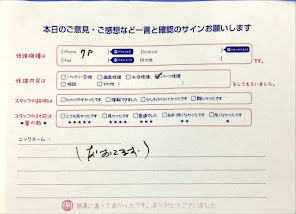 本日のご意見・ご感想など一言と確認のサインお願いします
修理機種は
iPhone 7P
Android
iPad
その他
です。
修理内容は
バッテリー交換 画面修理 水没修理 パーツ修理
相談 その他
をしてもらいました。
スタッフの説明は
わかりやすかったです 理解できました 少しわかりにくかったです 難しかったです
スタッフの対応は
とても良かったです 良かったです 普通でした あまり良くなかったです 良くなかったです
★星の数★
★★★★★ ★★★★ ★★★ ★★ ★
ニックネーム：
無事に直って良かったです。ありがとうございました